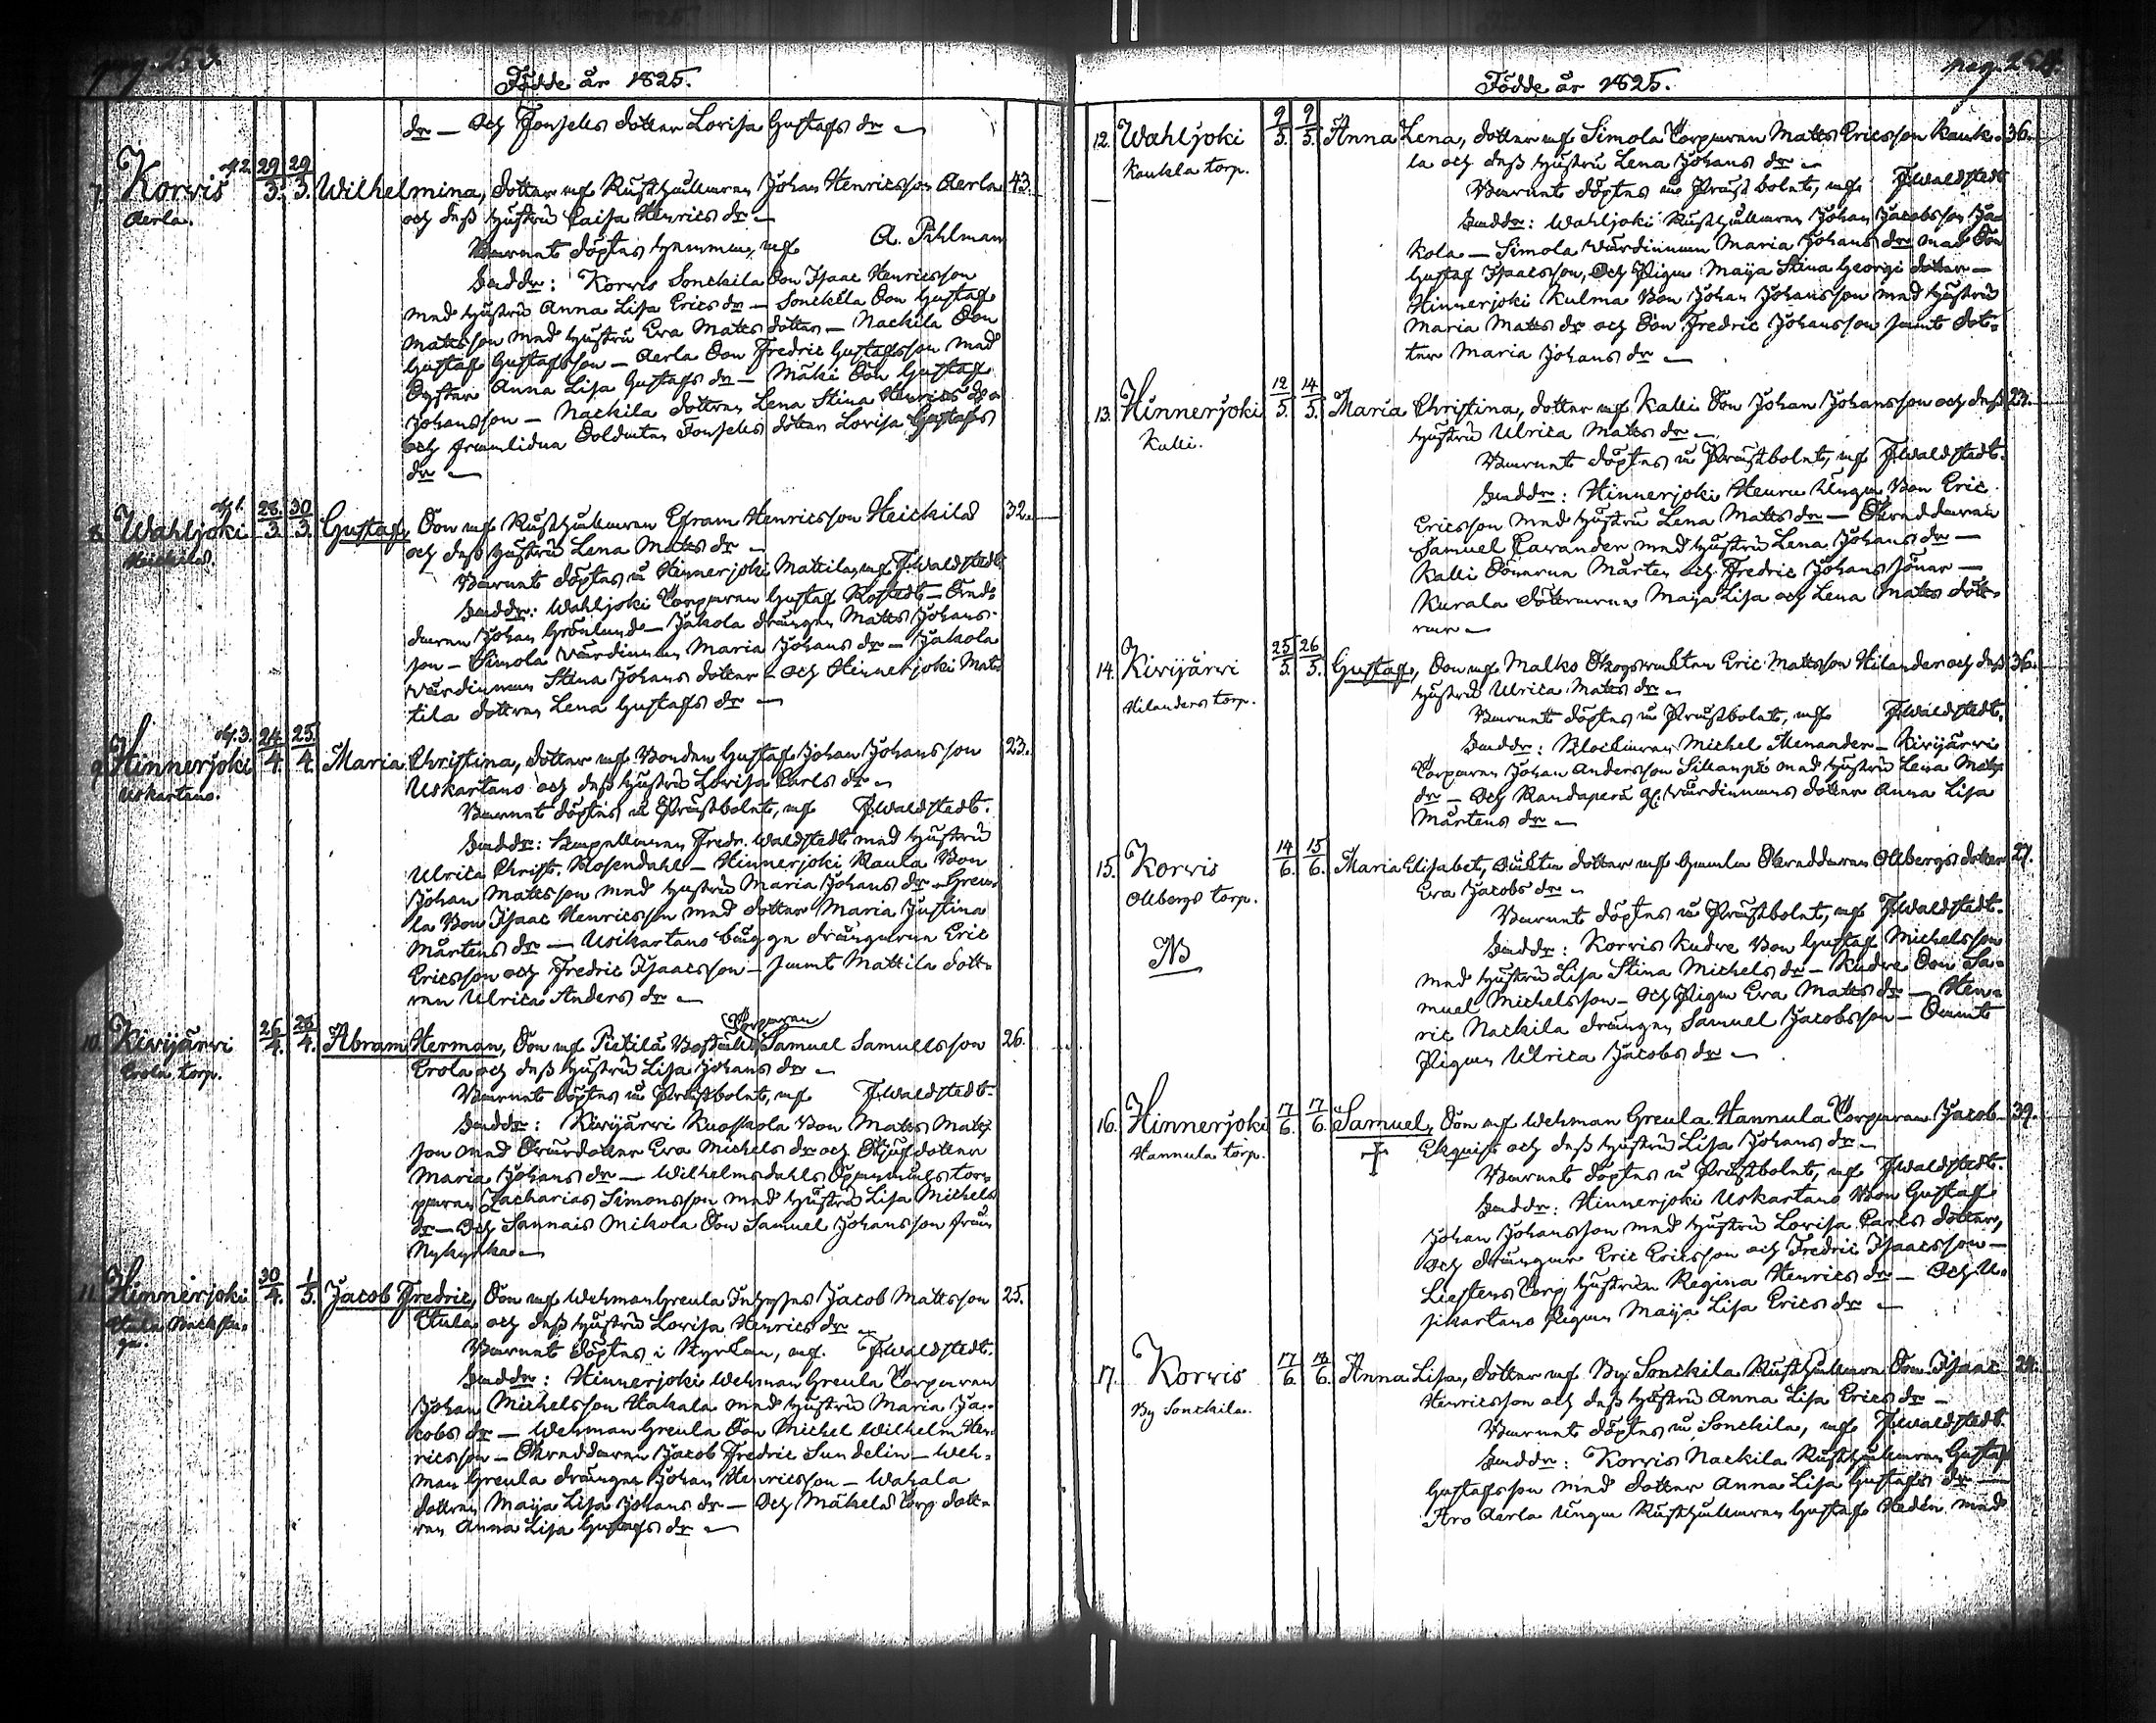 pag. 253.
Födde år 1825.
dr — Och Fonsells dotter Lovisa Gustafs dr —
7. Korvis N:2. 29/3. 29/3. Wilhelmina, dotter af Rusthållaren Johan Henricsson Aerla 43.
Aerla. och dess hustru Caisa Henrics dr —
Barnet döptes hemma, af A. Pihlman
Faddr: Korvis Sonckila Son Isaac Henricsson
med hustru Anna Lisa Erics dr — Sonckila Son Gustaf
Mattsson med hustru Eva Matts dotter — Nackila Son
Gustaf Gustafsson — Aerla Son Fredric Gustafsson med
Syster Anna Lisa Gustafs dr — Mäki Son Gustaf
Johansson — Nackila dottren Lena Stina Henrics dr
och framlidna Soldaten Fonsells dotter Lovisa Gustafs
dr —
8. Wahljoki N:1. 28/3. 30/3. Gustaf, Son af Rusthållaren Efram Henricsson Heickilä 32.
Heickilä. och dess hustru Lena Matts dr —
Barnet döptes i Hinnerjoki Mattila, af F. Waldstedt
Faddr: Wahljoki Torparen Gustaf Rostedt —
Johan Grönlund — Jakola drängen Matts Johans-
son — Simola värdinnan Maria Johans dr — Jakola
värdinnan Stina Johans dotter — Och Hinnerjoki Mat-
tila dottren Lena Gustafs dr —
9. Hinnerjoki N:3. 24/4. 25/4. Maria Christina, dotter af Bonden Gustaf Johan Johansson 23.
Uskartano. Uskartano och dess hustru Lovisa Carls dr —
Barnet döptes i Prästbolet, af F. Waldstedt.
Faddr: Kapellanen Fredr. Waldstedt med hustru
Ulrica Christ. Rosendahl — Hinnerjoki Kaula Bon
Johan Mattsson med hustru Maria Johans dr — Greu-
la Bon Isaac Henricsson med dotter Maria Justina
Mårtens dr — Usikartano bägge drängarna Eric
Ericsson och Fredric Isaacsson — samt Mattila dott-
ren Ulrica Anders dr —
10. Kivijärvi 26/4. 28/4. Abram Herman, Son af Pietilä Torparen Samuel Samuelsson 26.
Erola torp. Erola och dess hustru Lisa Johans dr —
Barnet döptes i Prästbolet, af F. Waldstedt.
Faddr: Kivijärvi Ruoskola Bon Matts Matts-
son med Svärdotter Eva Michels dr och Styfdotter
Maria Johans dr — Wilhelmsdahls tor-
paren Zacharias Simonsson med hustru Lisa Michels
dr — Och Sannais Mikola Son Samuel Johansson från
Nykyrka —
11. Hinnerjoki 30/4. 1/5. Jacob Fredric, Son af Wehman Greula Inhyses Jacob Mattsson 25.
Stula och dess hustru Lovisa Henrics dr —
Barnet döptes i Kyrkan, af F. Waldstedt.
Faddr: Hinnerjoki Wehman Greula Torparen
Johan Michelsson Hakala med hustru Maria Ja-
cobs dr — Wehman Greula Son Michel Wilhelm Hen-
ricsson — Skräddaren Jacob Fredric Sundelin — Weh-
man Greula drängen Johan Henricsson — Wahala
dottren Maija Lisa Johans dr — Och Mäkelä torp dott-
ren Anna Lisa Gustafs dr —
pag. 254.
Födde år 1825.
12. Wahljoki 9/5. 9/5. Anna Lena, dotter af Simola Torparen Matts Ericsson Kauk- 36.
Kaukla torp. la och dess hustru Lena Johans dr —
Barnet döptes i Prästbolet, af F. Waldstedt
Faddr: Wahljoki Rusthållaren Johan Jacobsson Ja-
kola — Simola värdinnan Maria Johans dr med Son
Gustaf Isaacsson, Och Pigan Maija Stina Georgi dotter —
Hinnerjoki Kulma Bon Johan Johansson med hustru
Maria Matts dr och Son Fredric Johansson samt dot-
ter Maria Johans dr —
13. Hinnerjoki 12/5. 14/5. Maria Christina, dotter af Kalli Son Johan Johansson och dess 23.
Kalli. hustru Ulrica Matts dr —
Barnet döptes i Prästbolet, af F. Waldstedt.
Faddr: Hinnerjoki Heuru Unga Bon Eric
Ericsson med hustru Lena Matts dr — Skräddaren
Samuel Cavander med hustru Lena Johans dr —
Kalli Sönerna Mårten och Fredric Johans söner —
Kurala döttrarna Maija Lisa och Lena Matts dött-
rar —
14. Kivijärvi 25/5. 26/5. Gustaf, Son af Malko Skogsvakten Eric Mattsson Hilander och dess 36.
Hilanders torp. hustru Ulrica Matts dr —
Barnet döptes i Prästbolet, af F. Waldstedt.
Faddr: Klockaren Michel Menander — Kivijärvi
Torparen Johan Andersson Sillanpä med hustru Lena Matts
dr — Och Randaperä gl. värdinnans dotter Anna Lisa
Mårtens dr —
15. Korvis 14/6. 15/6. Maria Elisabet, oäkta dotter af Gamla Skräddaren Ollbergs dotter 27.
Ollbergs torp. Eva Jacobs dr —
Barnet döptes i Prästbolet, af F. Waldstedt.
NB Faddr: Korvis Kudre Bon Gustaf Michelsson
med hustru Lisa Stina Michels dr — Kudre Son Sa-
muel Michelsson — Och Pigan Eva Matts dr — Hen-
ric Nackila drängen Samuel Jacobsson — Samt
Pigan Ulrica Jacobs dr —
16. Hinnerjoki 17/6. 17/6. Samuel, Son af Wehman Greula Hannula Torparen Jacob 39.
Hannula torp. † Ekquist och dess hustru Lisa Johans dr —
Barnet döptes i Prästbolet, af F. Waldstedt.
Faddr: Hinnerjoki Uskartano Bon Gustaf
Johan Johansson med hustru Lovisa Carls dotter,
Och drängar Eric Ericsson och Fredric Isaacsson —
Liestens Torp hustrun Regina Henrics dr — Och U-
sikartano Pigan Maija Lisa Erics dr —
17. Korvis 17/6. 18/6. Anna Lisa, dotter af By Sonckila Rusthållare Son Isaac 24.
By Sonckila. Henricsson och dess hustru Anna Lisa Erics dr —
Barnet döptes i Sonckila, af F. Waldstedt.
Faddr: Korvis Nackila Rusthållaren Gustaf
Gustafsson med dotter Anna Lisa Gustafs dr —
Aro Aerla Unga Rusthållaren Gustaf Hedén med